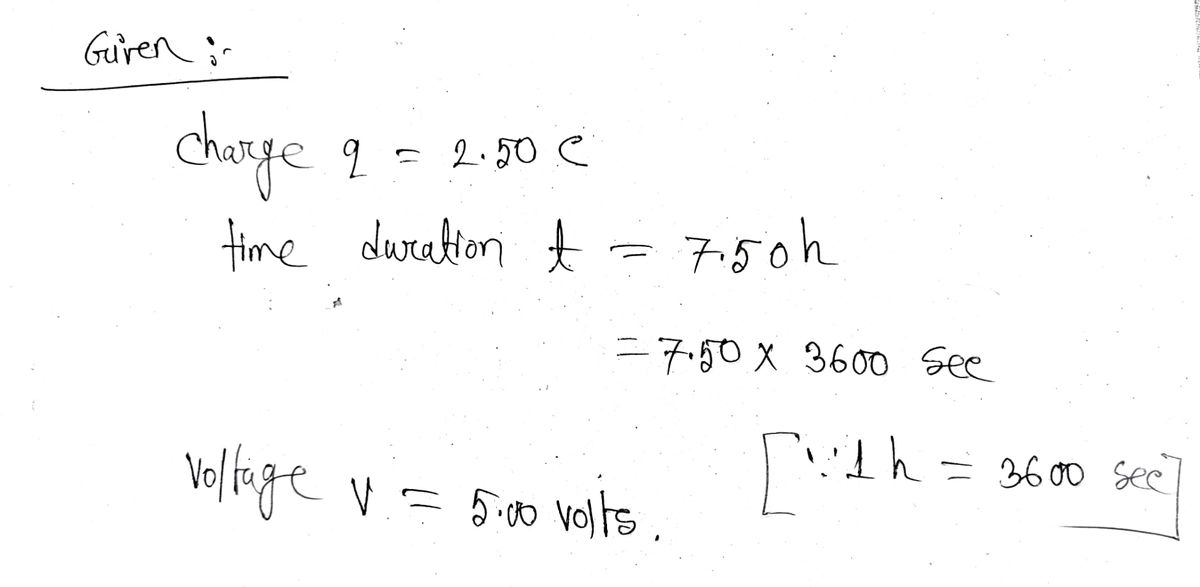 Given :-
charge q = 2.50 C
time duration t = 7.50h
= 7.50 X 3600 sec
[∵1 h = 3600 sec]
Voltage V = 5.00 volts.